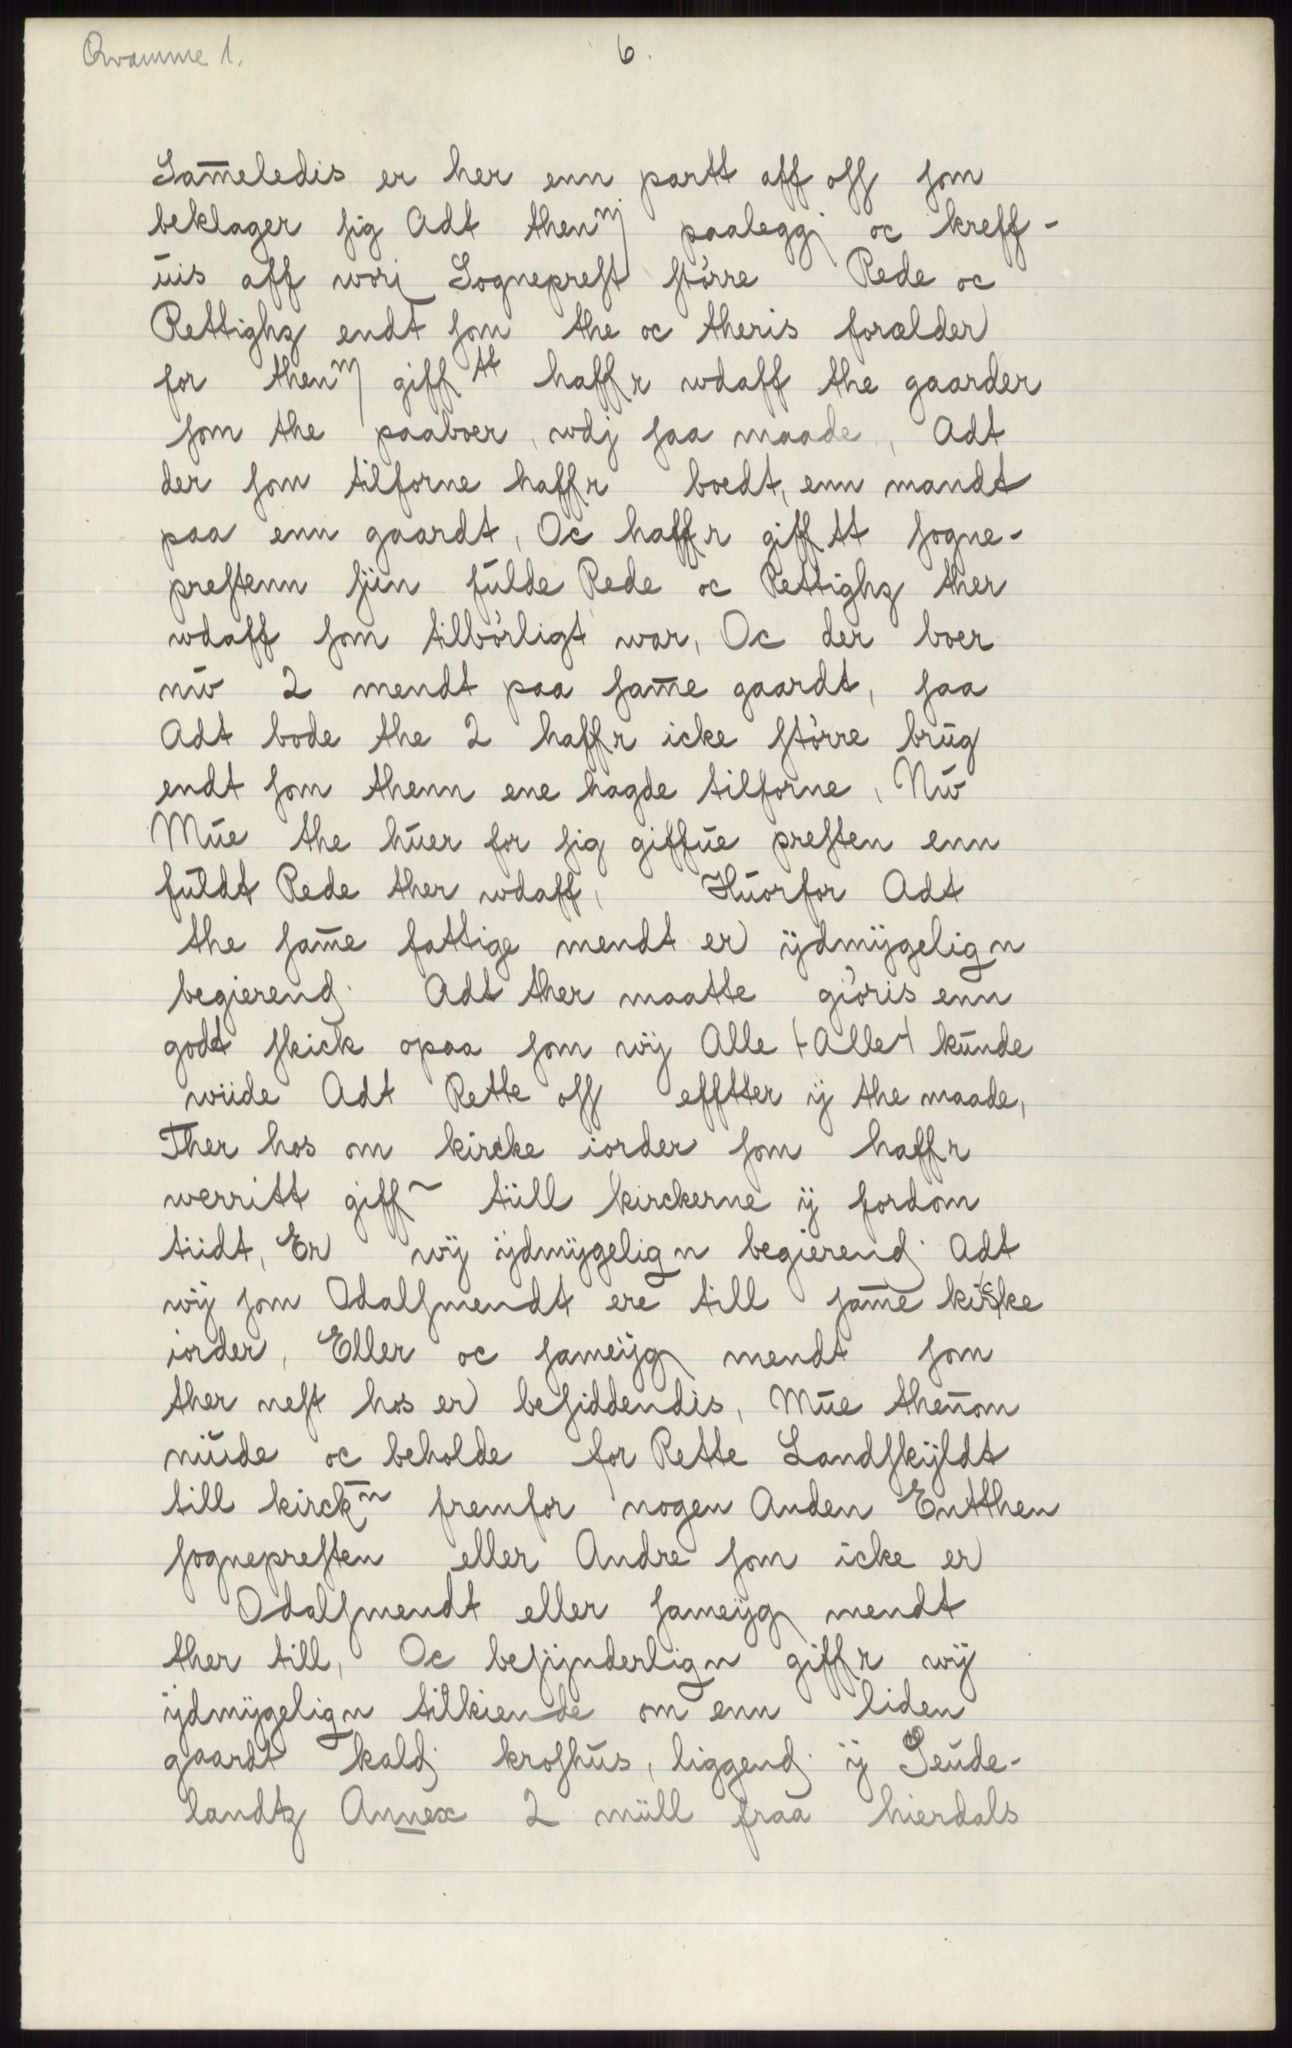 Qvamme 1.
6.
Sam̅eledis er her enn partt aff oss som
beklager sig Adt thenn̄ paalegg oc kreff-
uis aff worj Sogneprest større Rede oc
Rettighz endt som the oc theris forælder
for thenn̄ gifftt haffr wdaff the gaarder
som the paaboer, wdj saa maade, Adt
der som tilforne haffr boedt, enn mandt
paa enn gaardt, Oc haffr gifftt sogne-
prestenn siin fulde Rede oc Rettighz ther
wdaff som tilbørligt war, Oc der boer
nw 2 mendt paa sam̅e gaardt, saa
Adt bode the 2 haffr icke større brug
endt som thenn ene hagde tilforne, Nw
Mue the huer for sig giffue presten enn
fuldt Rede ther wdaff, Huorfor Adt
the sam̅e fattige mendt er ÿdmÿgelign
begierend Adt ther maatte giøris enn
godt skick opaa som wÿ Alle (Alle) kunde
wiide Adt Rette oss efftter ÿ the maade,
Ther hos om kircke iorder som haffr
werritt giff~ tiill kirckerne ÿ fordom
tiidt, Er wÿ ÿdmÿgelign begierend Adt
wÿ som Odalsmendt ere till sam̅e kircke
iorder, Eller oc sameÿg mendt som
ther nest hos er besiddendis, Mue thenom
niude oc beholde for Rette Landskÿldt
till kirckn̅ fremfor nogen Anden Entthen
sognepresten eller Andre som icke er
Odalsmendt eller sameÿg mendt
ther till, Oc besÿnderlign giffr wÿ
ÿdmÿgelign tilkiende om enn liden
gaardt kald kroshus, liggend ÿ Seude-
landtz Annex 2 miill fraa hierdals